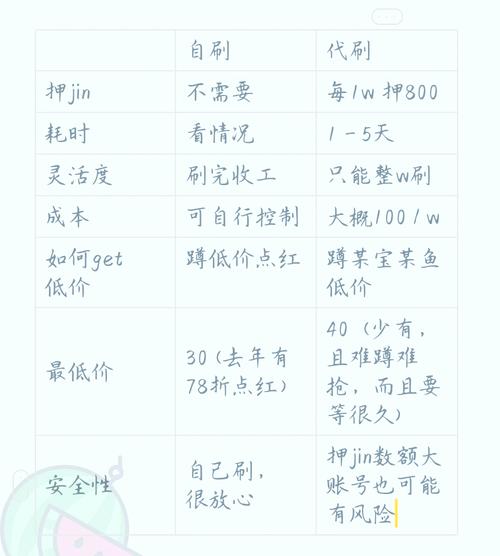 自刷 代刷
押jin 不需要 每1w 押800
耗时 看情况 1-5天
灵活度 刷完收工 只能整w刷
成本 可自行控制 大概100/w
如何get
低价
蹲低价点红
蹲某宝某鱼
低价
最低价
30(去年有
78折点红)
40（少有，
且难蹲难
抢，而且要
等很久）
安全性
自己刷，
很放心
押jin数额大
账号也可能
有风险